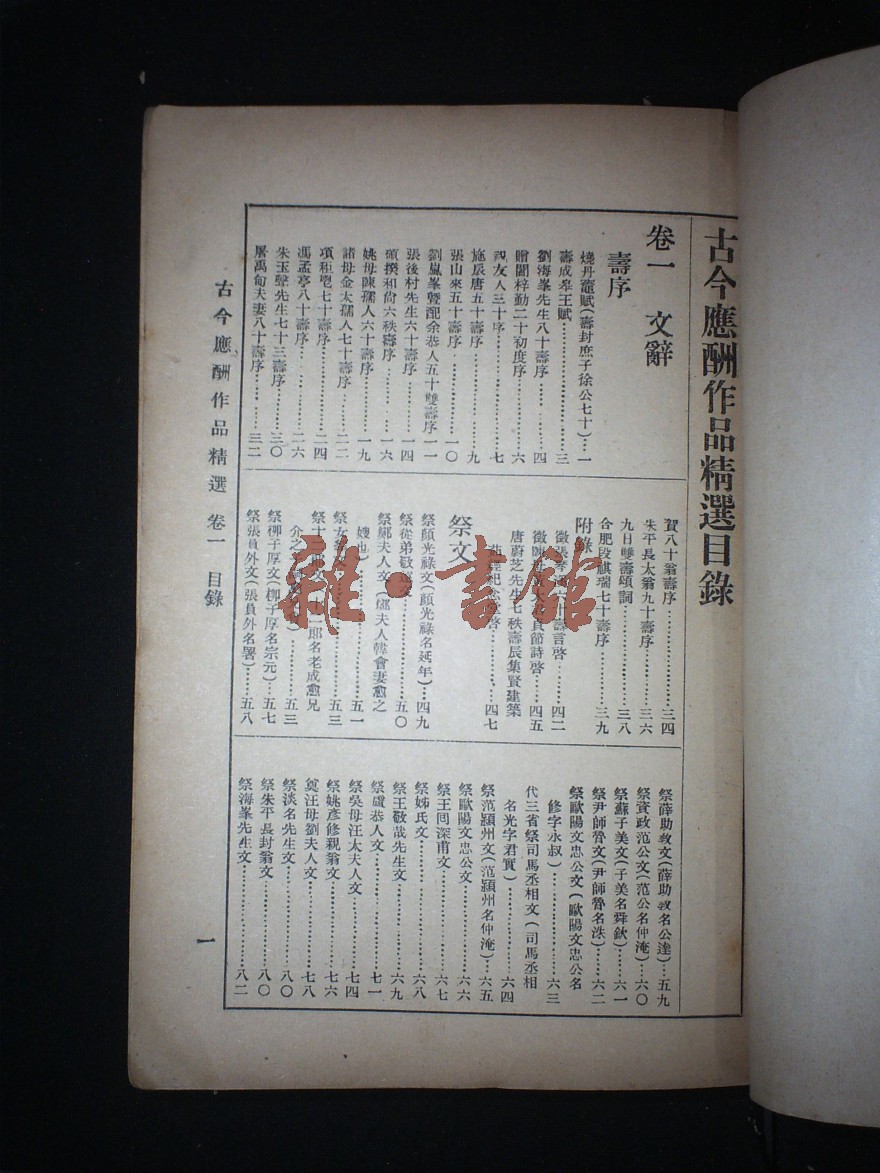 古今應酬作品精選目錄
卷一 文辭
壽序
燒丹竈賦(壽封庶子徐公七十)…一
壽成皋王賦……三
劉海峯先生八十壽序……四
贈閻梓勤二十初度序……六
四友人三十序……七
施辰唐五十壽序……九
張山來五十壽序……一〇
劉嵐峯暨配余恭人五十雙壽序一一
張後村先生六十壽序……一四
碩揆和尚六秩壽序……一六
姚母陳孺人六十壽序……一九
諸母金太孺人七十壽序……二二
項秬鬯七十壽序……二四
馮孟亭八十壽序……二六
朱玉聲先生七十三壽序……三〇
屠禹甸夫妻八十壽序……三二
賀八十翁壽序……三四
朱平長太翁九十壽序……三六
九日雙壽頌詞……三八
合肥段祺瑞七十壽序……三九
附錄
徵張 六十壽言啓……四二
徵陳母 貞節詩啓……四五
唐蔚芝先生七秩壽辰集賢建築
茹經紀念 啓……四七
祭文
祭顏光祿文(顏光祿名延年)…四九
祭從弟敬遠文……五〇
祭鄭夫人文(鄭夫人韓會妻愈之
嫂也)……五一
祭女 文……五三
祭十二郎文(十二郎名老成愈兄
介之 )……五三
祭柳子厚文(柳子厚名宗元)…五七
祭張員外文(張員外名署)……五八
祭薛助敎文(薛助敎名公達)…五九
祭資政范公文(范公名仲淹)…六〇
祭蘇子美文(子美名舜欽)……六一
祭尹師魯文(尹師魯名洙)……六二
祭歐陽文忠公文(歐陽文忠公名
修字永叔)……六三
代三省祭司馬丞相文(司馬丞相
名光字君實)……六四
祭范潁州文(范潁州名仲淹)…六五
祭歐陽文忠公文……六六
祭王回深甫文……六七
祭姊氏文……六八
祭王敬哉先生文……六九
祭盧恭人文……七一
祭吳母汪太夫人文……七四
祭姚彥修親翁文……七六
奠汪母劉夫人文……七八
祭淡名先生文……八〇
祭朱平長封翁文……八〇
祭海峯先生文……八二
古今應酬作品精選 卷一 目錄
一
雜·書館